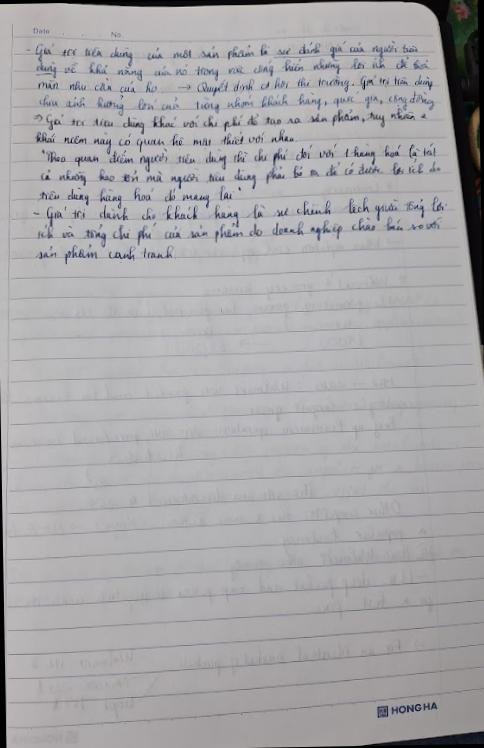 Date No.
- Giá trị tiêu dùng của một sản phẩm là sự đánh giá của người tiêu
dùng về khả năng của nó trong việc cống hiến những lợi ích để thoả
mãn nhu cầu của họ → Quyết định cơ hội thị trường. Giá trị tiêu dùng
chịu ảnh hưởng lớn của từng nhóm khách hàng, quốc gia, cộng đồng
⇒ Giá trị tiêu dùng khác với chi phí để tạo ra sản phẩm, tuy nhiên 2
khái niệm này có quan hệ mật thiết với nhau.
"Theo quan điểm người tiêu dùng thì chi phí đối với 1 hàng hoá là tất
cả những hao tổn mà người tiêu dùng phải bỏ ra để có được lợi ích do
tiêu dùng hàng hoá đó mang lại"
- Giá trị dành cho khách hàng là sự chênh lệch giữa tổng lợi
ích và tổng chi phí của sản phẩm do doanh nghiệp chào bán so với
sản phẩm cạnh tranh.
HONG HA